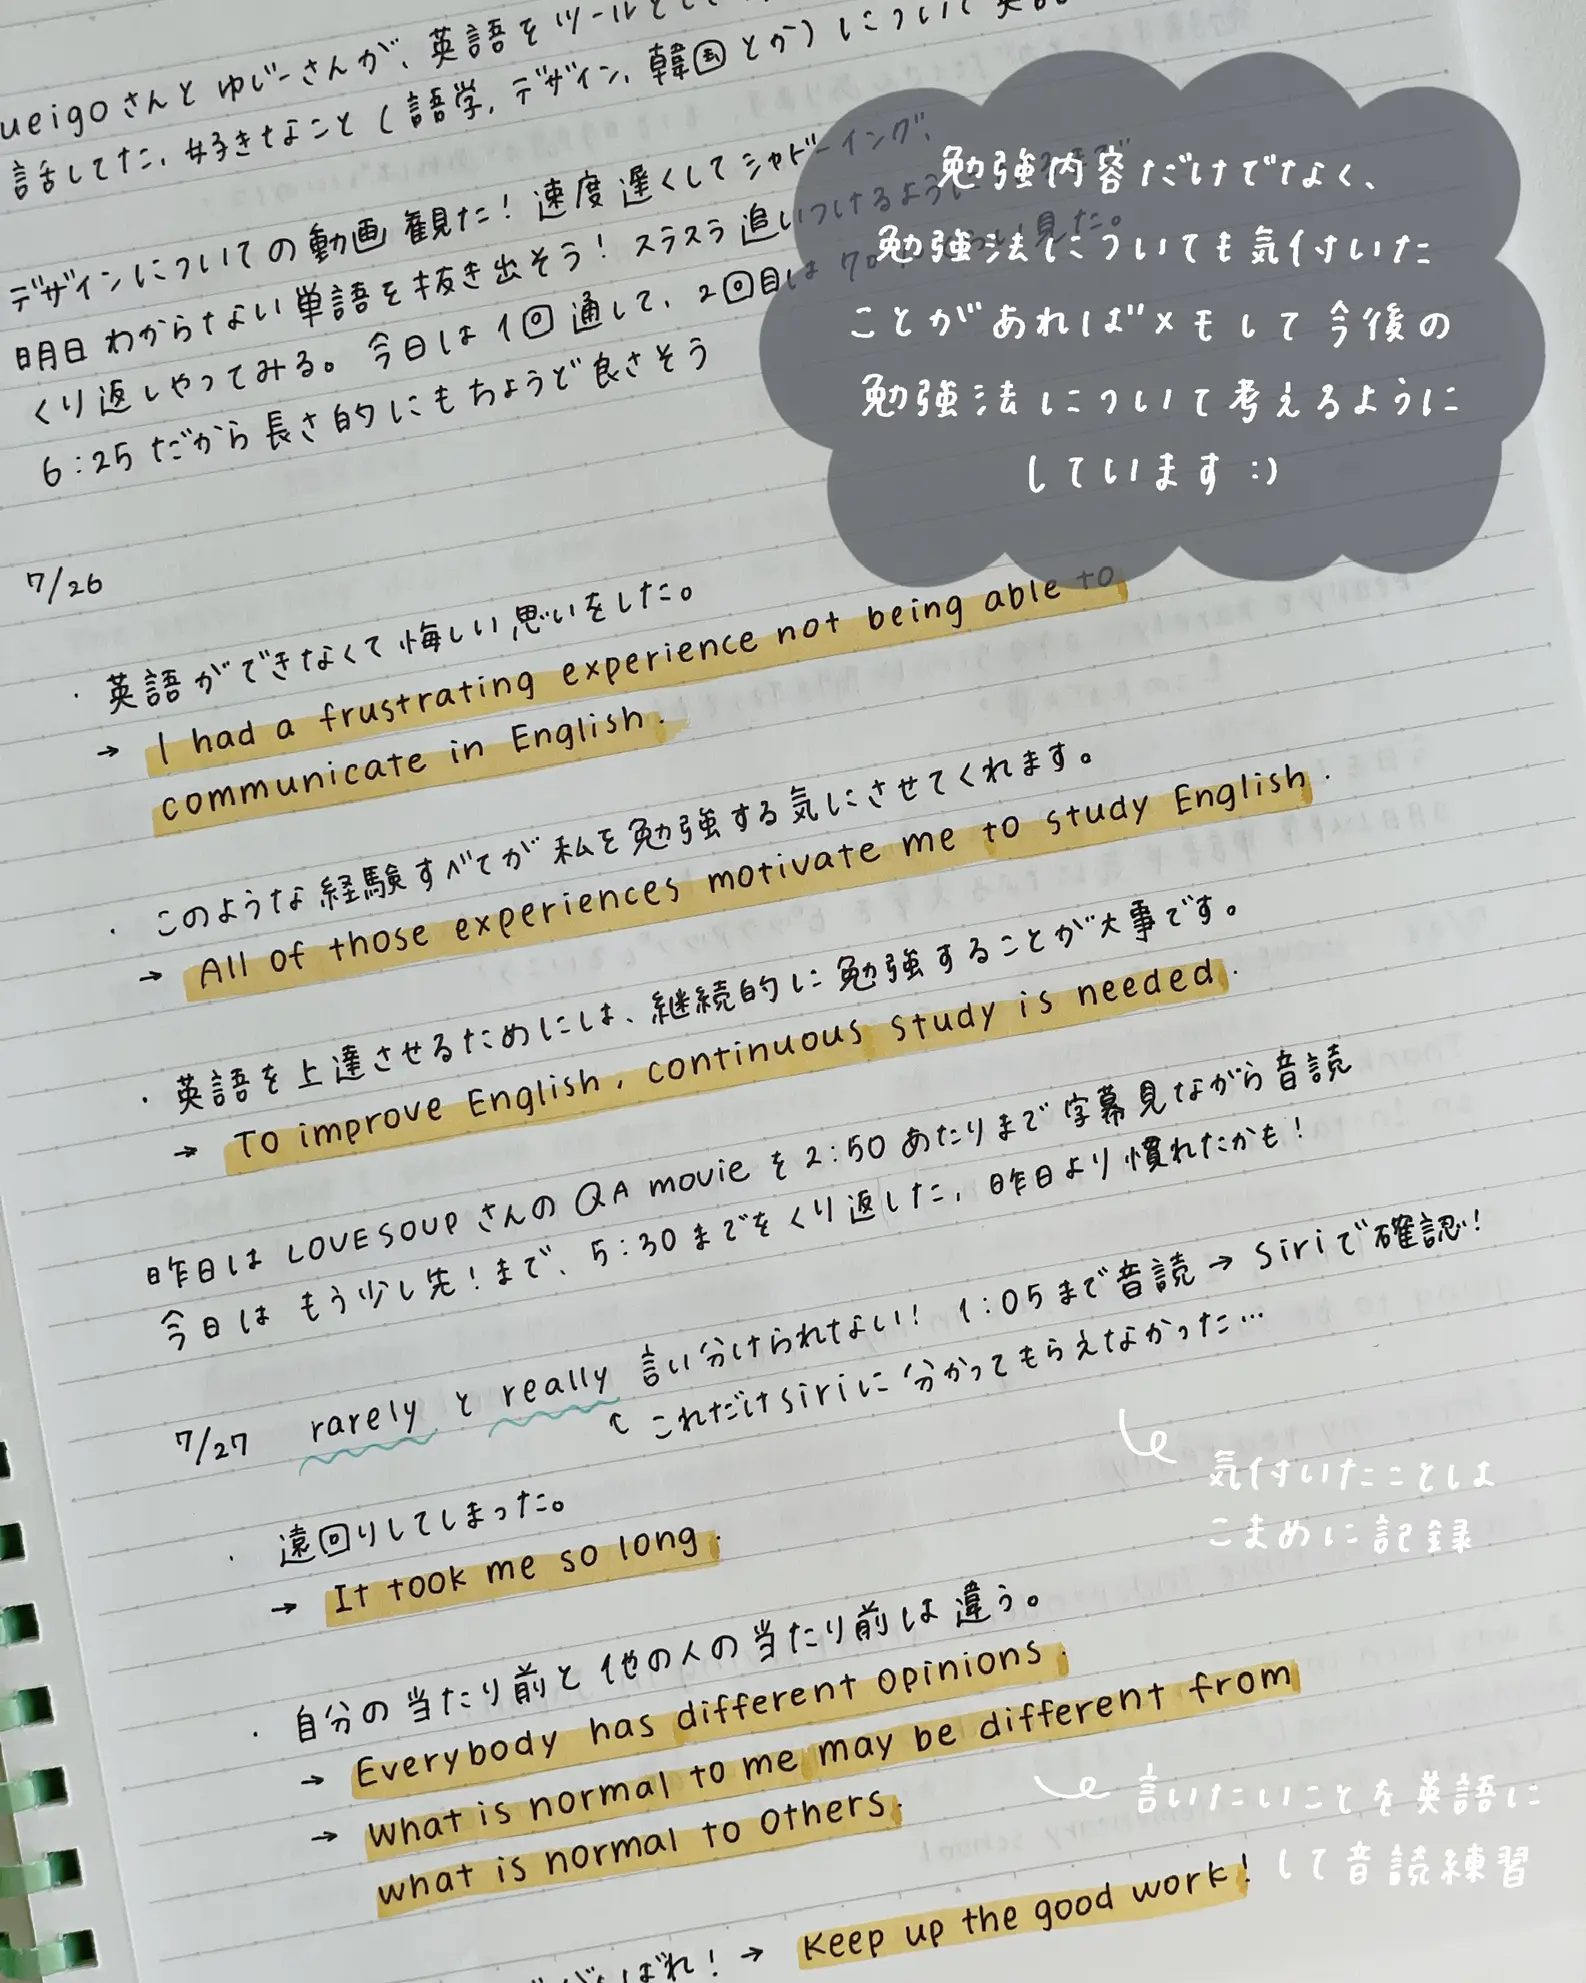 ueigoさんとゆじーさんが、英語をツールとして
話してた、好きなこと(語学,デザイン,韓国とか)について英語
デザインについての動画観た!速度遅くしてシャドーイング、
明日わからない単語を抜き出そう!スラスラ追いつけるように
くり返しやってみる。今日は1回通して、2回目は70%くらい見た。
6:25だから長さ的にもちょうど良さそう
勉強内容だけでなく、
勉強法についても気付いた
ことがあればメモして今後の
勉強法について考えるように
しています:)
7/26
・英語ができなくて悔しい思いをした。
→ I had a frustrating experience not being able to
communicate in English.
・このような経験すべてが私を勉強する気にさせてくれます。
→ All of those experiences motivate me to study English.
・英語を上達させるためには、継続的に勉強することが大事です。
→ To improve English, continuous study is needed.
昨日はLOVE SOUPさんのQA movieを2:50あたりまで字幕見ながら音読
今日はもう少し先!まで、5:30までをくり返した、昨日より慣れたかも!
7/27 rarelyとreally 言い分けられない! 1:05まで音読→siriで確認!
↑これだけsiriに分かってもらえなかった…
気付いたことは
こまめに記録
・遠回りしてしまった。
→ It took me so long.
・自分の当たり前と他の人の当たり前は違う。
→ Everybody has different opinions.
→ what is normal to me may be different from
what is normal to others.
言いたいことを英語に
して音読練習
ばれ!→ Keep up the good work!